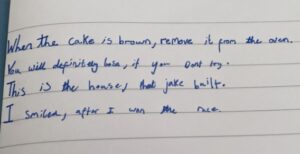 When the cake is brown, remove it from the oven.
You will definitely lose, if you Dont try.
This is the house, that jake built.
I smiled, after I won the race.